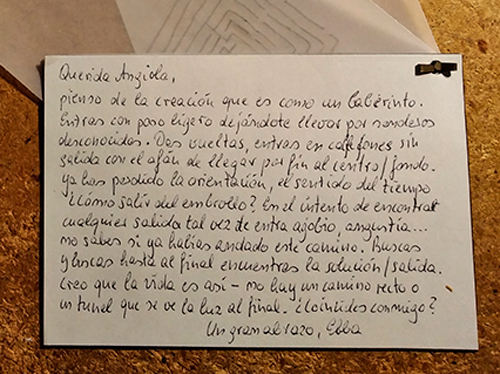 Querida Angiola,
pienso de la creación que es como un laberinto.
Entras con paso ligero dejándote llevar por senderos
desconocidos. Das vueltas, entras en callejones sin
salida con el afán de llegar por fin al centro/fondo.
Ya has perdido la orientación, el sentido del tiempo
¿Cómo salir del embrollo? En el intento de encontrar
cualquier salida tal vez de entra agobio, angustia...
no sabes si ya habías andado este camino. Buscas
y buscas hasta al final encuentras la solución/salida.
Creo que la vida es así - no hay un camino recto o
un tunel que se ve la luz al final. ¿Coincides conmigo?
Un gran abrazo, Ebba